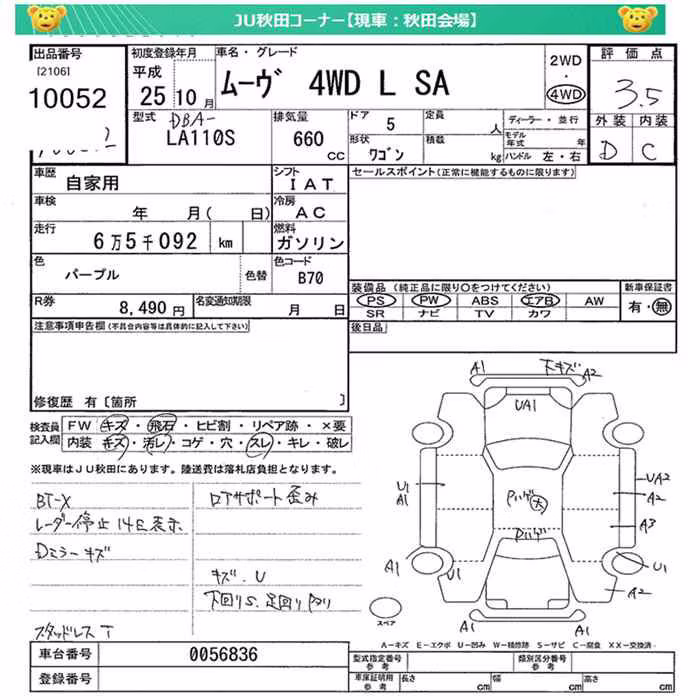 JU秋田コーナー【現車：秋田会場】
出品番号
[2106]
10052
初度登録年月
平成
25 10月
車名・グレード
ムーヴ 4WD L SA
2WD
・
4WD
評価点
3.5
外装 内装
D C
型式
DBA-
LA110S
排気量
660
CC
ドア
5
定員
人
形状
ワゴン
積載
kg
ディーラー・並行
モデル年式 年
ハンドル 左・右
車歴
自家用
シフト
IAT
車検
年 月( 日)
冷房
AC
走行
6万5千092 km
燃料
ガソリン
色
パープル
色替
色コード
B70
R券
8,490円
名変通知期限
月 日
セールスポイント(正常に機能するものに限ります)
装備品 (純正品に限り○をつけてください)
PS PW ABS エアB AW
SR ナビ TV カワ
新車保証書
有・無
後日品
注意事項申告欄(不具合内容等は具体的に記入して下さい)
修復歴 有 [箇所 ]
検査員
記入欄
FW キズ・飛石・ヒビ割・リペア跡・×要
内装 キズ・汚レ・コゲ・穴・スレ・キレ・破レ
※現車はJU秋田にあります。陸送費は落札店負担となります。
BT-X
レーダー停止 14E表示
Dミラーキズ
スタッドレス T
ロアサポート歪み
キズ.U
下回りS.足回り
A1
下キズ
A2
UA1
U1
A1
UA2
A2
A3
大
A1
U1
U1
A2
A1
A1
スペア
A-キズ E-エクボ U-凹み W-補修跡 S-サビ C-腐食 XX-交換済
車台番号
0056836
登録番号
型式指定番号
参考
類別区分番号
参考
車庫証明
参考
長さ cm
幅 cm
高さ cm